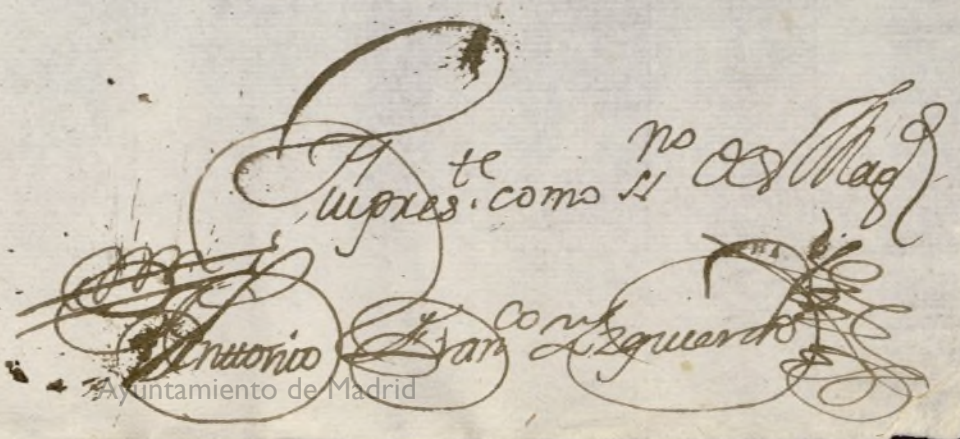 fui pres.te como ss.no de su Mag.d
Anttonio Fran.co Yzquierdo
Ayuntamiento de Madrid